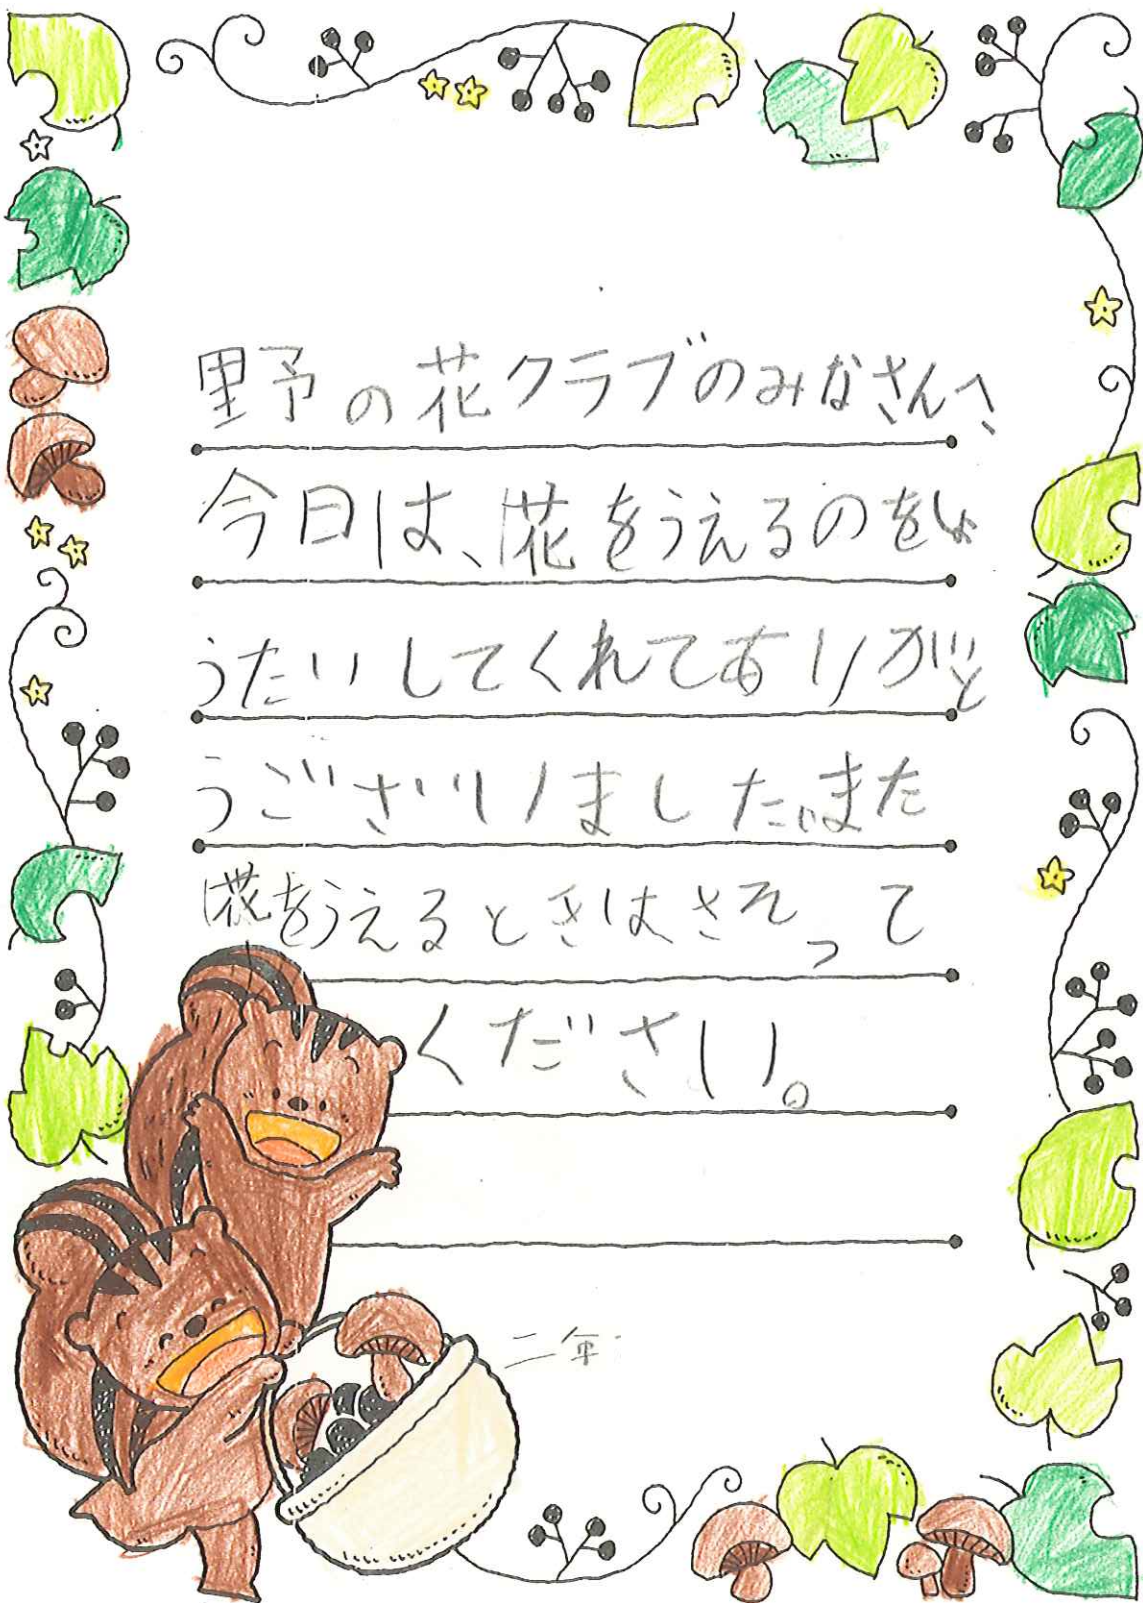 野の花クラブのみなさんへ、
今日は、花をうえるのをしょ
うたいしてくれてありがと
うございました。また
花をうえるときは、さそって
ください。
二年